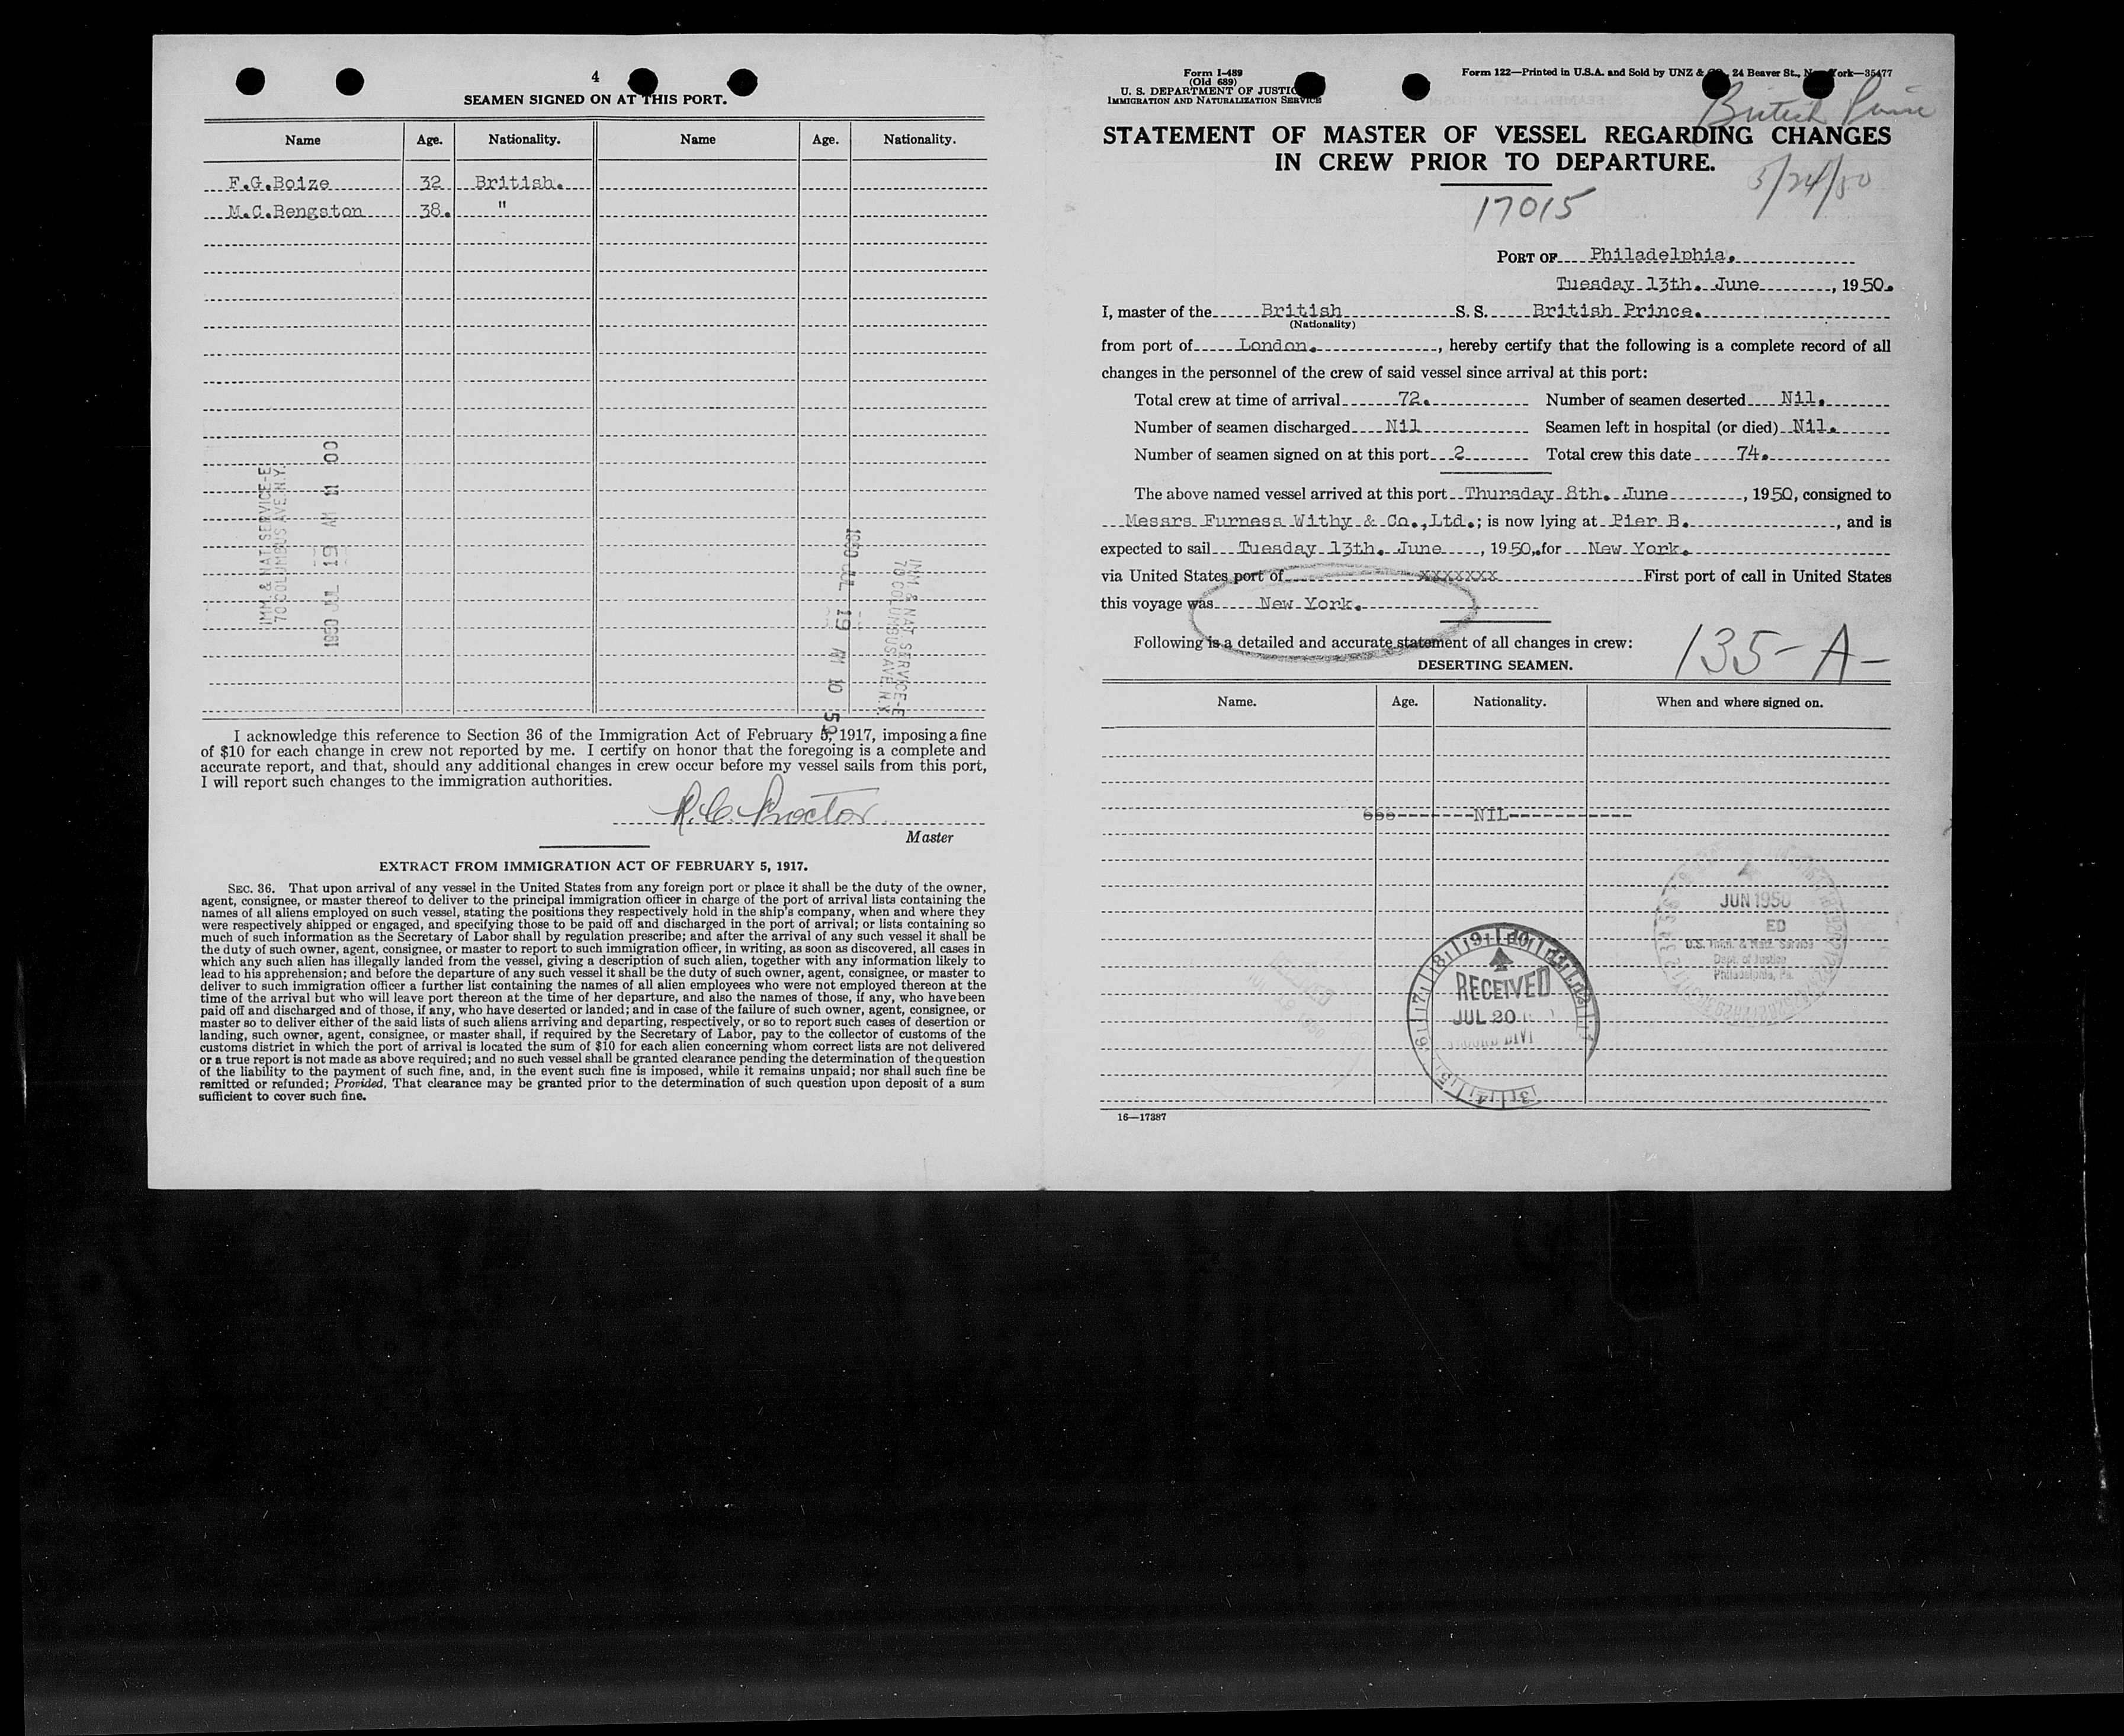 4
SEAMEN SIGNED ON AT THIS PORT.
Name Age. Nationality. Name Age. Nationality.
F.G.Boize 32 British.
M.C.Bengston 38. "
IMM. & NAT. SERVICE-E
70 COLUMBUS AVE. N.Y.
1950 JUL 19 AM 11 00
1950 JUL 19 AM 10 59
IMM. & NAT. SERVICE-E
70 COLUMBUS AVE. N.Y.
I acknowledge this reference to Section 36 of the Immigration Act of February 5, 1917, imposing a fine
of $10 for each change in crew not reported by me. I certify on honor that the foregoing is a complete and
accurate report, and that, should any additional changes in crew occur before my vessel sails from this port,
I will report such changes to the immigration authorities.
R. C. Proctor
Master
EXTRACT FROM IMMIGRATION ACT OF FEBRUARY 5, 1917.
SEC. 36. That upon arrival of any vessel in the United States from any foreign port or place it shall be the duty of the owner,
agent, consignee, or master thereof to deliver to the principal immigration officer in charge of the port of arrival lists containing the
names of all aliens employed on such vessel, stating the positions they respectively hold in the ship's company, when and where they
were respectively shipped or engaged, and specifying those to be paid off and discharged in the port of arrival; or lists containing so
much of such information as the Secretary of Labor shall by regulation prescribe; and after the arrival of any such vessel it shall be
the duty of such owner, agent, consignee, or master to report to such immigration officer, in writing, as soon as discovered, all cases in
which any such alien has illegally landed from the vessel, giving a description of such alien, together with any information likely to
lead to his apprehension; and before the departure of any such vessel it shall be the duty of such owner, agent, consignee, or master to
deliver to such immigration officer a further list containing the names of all alien employees who were not employed thereon at the
time of the arrival but who will leave port thereon at the time of her departure, and also the names of those, if any, who have been
paid off and discharged and of those, if any, who have deserted or landed; and in case of the failure of such owner, agent, consignee, or
master so to deliver either of the said lists of such aliens arriving and departing, respectively, or so to report such cases of desertion or
landing, such owner, agent, consignee, or master shall, if required by the Secretary of Labor, pay to the collector of customs of the
customs district in which the port of arrival is located the sum of $10 for each alien concerning whom correct lists are not delivered
or a true report is not made as above required; and no such vessel shall be granted clearance pending the determination of the question
of the liability to the payment of such fine, and, in the event such fine is imposed, while it remains unpaid; nor shall such fine be
remitted or refunded; Provided, That clearance may be granted prior to the determination of such question upon deposit of a sum
sufficient to cover such fine.
Form I-489
(Old 689)
U. S. DEPARTMENT OF JUSTICE
IMMIGRATION AND NATURALIZATION SERVICE
Form 122—Printed in U.S.A. and Sold by UNZ & 24 Beaver St., New York—35477
British Prince
STATEMENT OF MASTER OF VESSEL REGARDING CHANGES
IN CREW PRIOR TO DEPARTURE.
5/24/50
17015
PORT OF Philadelphia.
Tuesday 13th. June , 1950.
I, master of the British S. S. British Prince.
(Nationality)
from port of London. , hereby certify that the following is a complete record of all
changes in the personnel of the crew of said vessel since arrival at this port:
Total crew at time of arrival 72. Number of seamen deserted Nil.
Number of seamen discharged Nil Seamen left in hospital (or died) Nil.
Number of seamen signed on at this port 2 Total crew this date 74.
The above named vessel arrived at this port Thursday 8th. June , 1950, consigned to
Messrs Furness Withy & Co.,Ltd.; is now lying at Pier B. , and is
expected to sail Tuesday 13th. June , 1950, for New York.
via United States port of xxxxxxx First port of call in United States
this voyage was New York.
Following is a detailed and accurate statement of all changes in crew:
135-A-
DESERTING SEAMEN.
Name. Age. Nationality. When and where signed on.
-------NIL-----------
JUN 1950
ED
U.S. Imm. & Natz. Service
Dept. of Justice
Philadelphia, Pa.
RECEIVED
JUL 20
16—17387